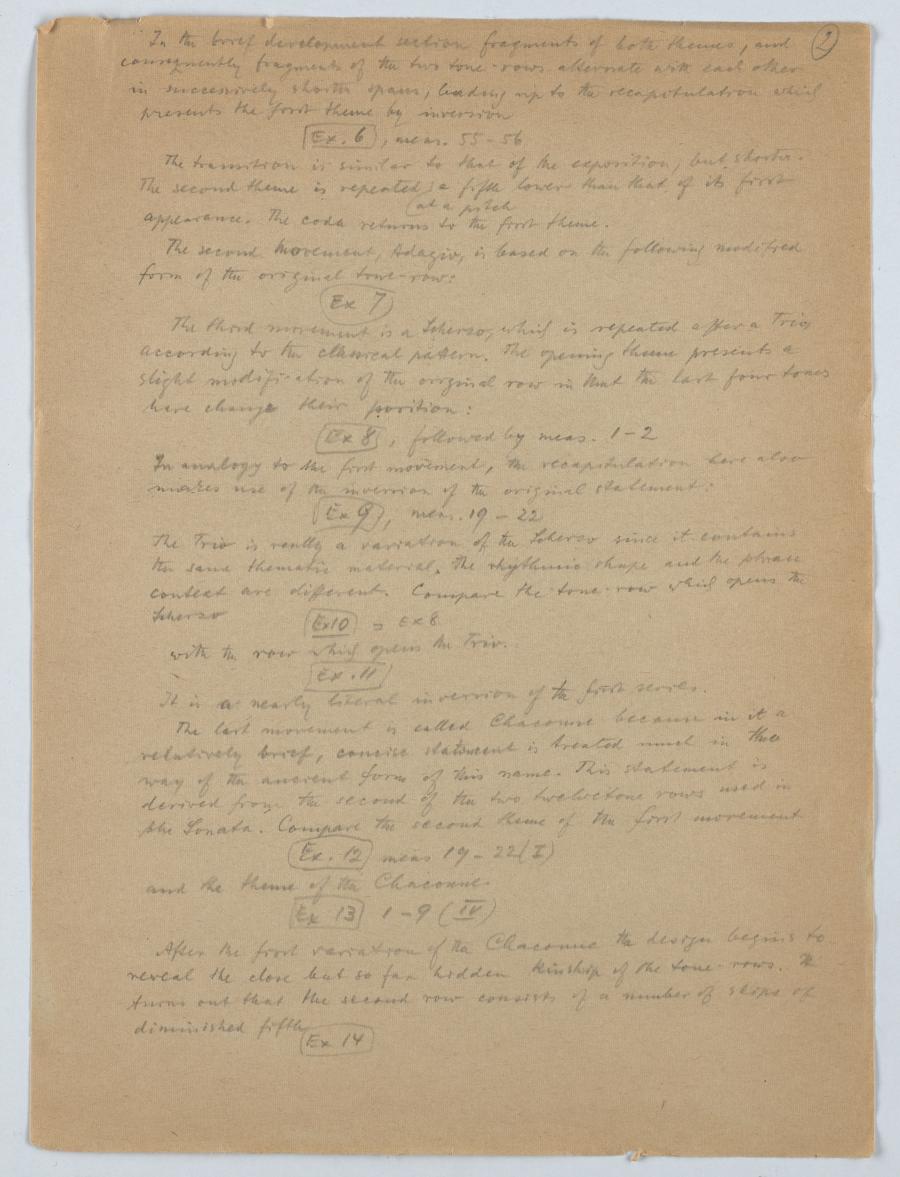 2
In the brief development section fragments of both themes, and
consequently fragments of the two tone-rows alternate with each other
in successively shorter spans, leading up to the recapitulation which
presents the first theme by inversion
Ex. 6, meas. 55-56
The transition is similar to that of the exposition, but shorter.
The second theme is repeated a fifth lower than that of its first
(at a pitch
appearance. The coda returns to the first theme.
The second Movement, Adagio, is based on the following modified
form of the original tone-row:
Ex 7
The third movement is a Scherzo, which is repeated after a Trio
according to the classical pattern. The opening theme presents a
slight modification of the original row in that the last four tones
have change their position:
Ex 8, followed by meas. 1-2
In analogy to the first movement, the recapitulation here also
makes use of the inversion of the original statement:
Ex 9, meas. 19-22
The Trio is really a variation of the Scherzo since it contains
the same thematic material. The rhythmic shape and the phrase
context are different. Compare the tone-row which opens the
Scherzo
Ex10 = Ex 8
with the row which opens the Trio.
Ex. 11
It is a nearly literal inversion of the first series.
The last movement is called Chaconne because in it a
relatively brief, concise statement is treated much in the
way of the ancient form of this name. This statement is
derived from the second of the two twelvetone rows used in
the Sonata. Compare the second theme of the first movement
Ex. 12 meas 19-22 (I)
and the theme of the Chaconne.
Ex 13 1-9 (IV)
After the first variation of the Chaconne the design begins to
reveal the close but so far hidden kinship of the tone-rows. It
turns out that the second row consists of a number of skips of
diminished fifths
Ex 14